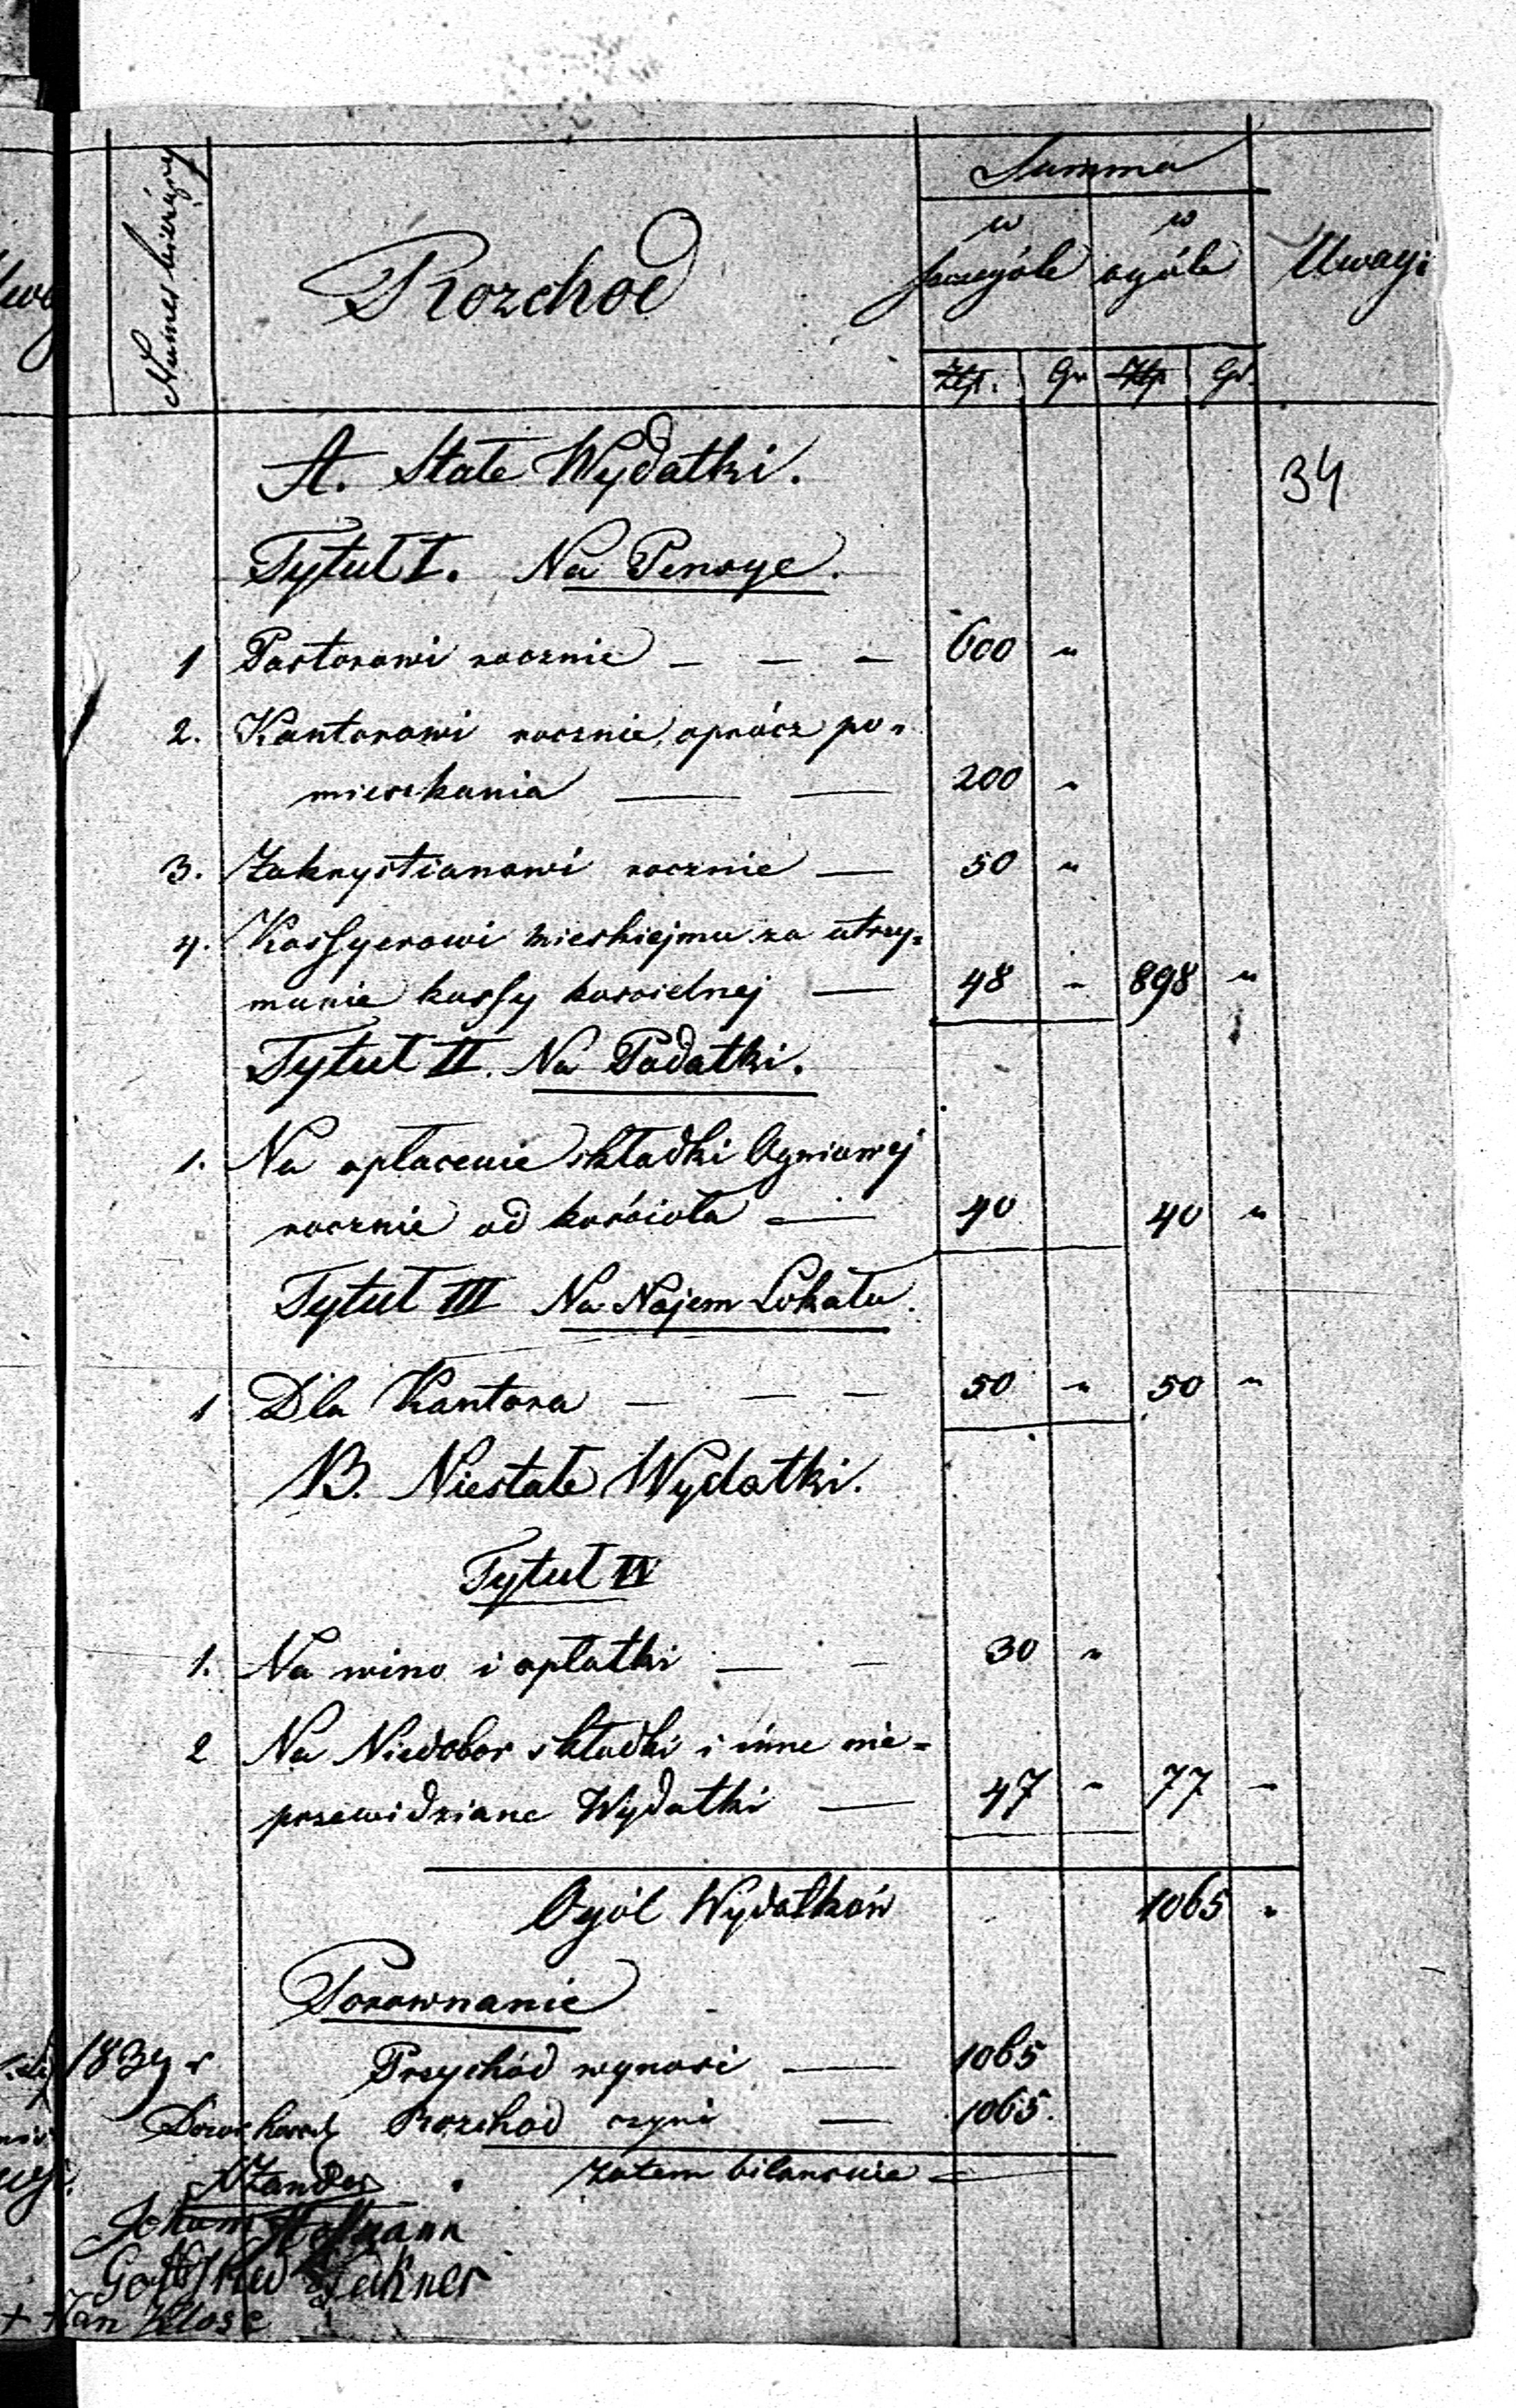 Numer bieżący
Rozchod
Summa
w szczególe
w ogóle
Uwagi
Złp. Gr Złp Gr.
A. Stałe Wydatki.
34
Tytuł I. Na Pensye.
1 Pastorowi rocznie — — — 600 "
2. Kantorowi rocznie, oprócz po-
mieszkania — — 200 "
3. Zakrystianowi rocznie — 50 "
4. Kassyerowi mieskiejmu za utrzy=
manie kassy koscielnej — 48 " 898 "
Tytuł II. Na Podatki.
1. Na opłacenie składki Ogniowej
rocznie od kościoła — 40 40 "
Tytuł III Na Najem Lokalu.
1 Dla Kantora — — — 50 " 50 "
B. Niestałe Wydatki.
Tytuł IV
1. Na wino i opłatki — — 30 "
2 Na Niedobor składki i inne nie=
przewidziane Wydatki — 47 " 77 "
Ogół Wydatków 1065 "
Porownanie
1839 r Przychód wynosi — 1065
Rozchod czyni — 1065.
zatem bilansuie
Zander
Hofmann
Gottfried
Jan Klose